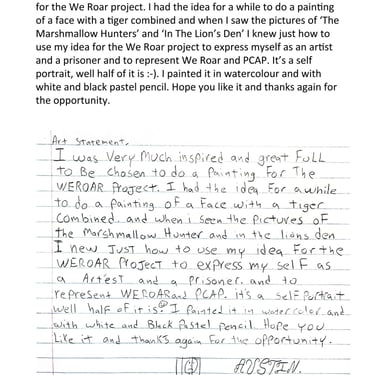 for the We Roar project. I had the idea for a while to do a painting
of a face with a tiger combined and when I saw the pictures of ‘The
Marshmallow Hunters’ and ‘In The Lion’s Den’ I knew just how to
use my idea for the We Roar project to express myself as an artist
and a prisoner and to represent We Roar and PCAP. It’s a self
portrait, well half of it is :-). I painted it in watercolour and with
white and black pastel pencil. Hope you like it and thanks again for
the opportunity.
Art Statement.
I was Very Much inspired and great Full
to Be chosen to do a Painting For The
WEROAR Project. I had the idea For a while
to do a Painting of a Face with a tiger
Combined. and when i Seen the Pictures of
the Marshmallow Hunter and in the lions den
I new Just how to use my idea For the
WEROAR Project to express my selF as
a Artest and a Prisoner. and to
represent WEROAR and PCAP. it's a selF Portrait
well half of it is. I Painted it in water color and
with white and Black Pastel Pencil. Hope you
Like it and thanks again For the opportunity.
AUSTIN.